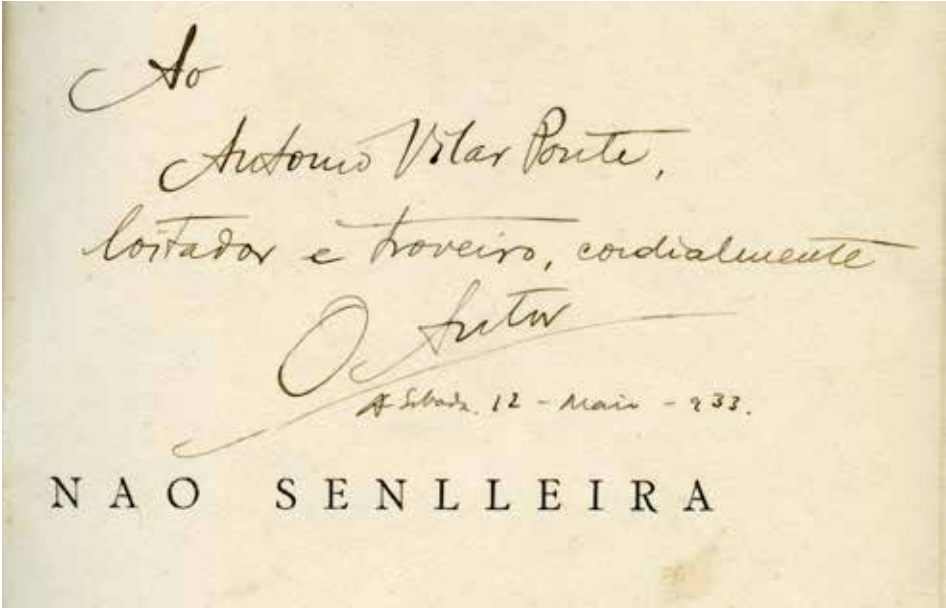 Ao
Antonio Vilar Ponte,
loitador e troveiro, cordialmente
O Autor
12 - Maio - 933.
NAO SENLLEIRA